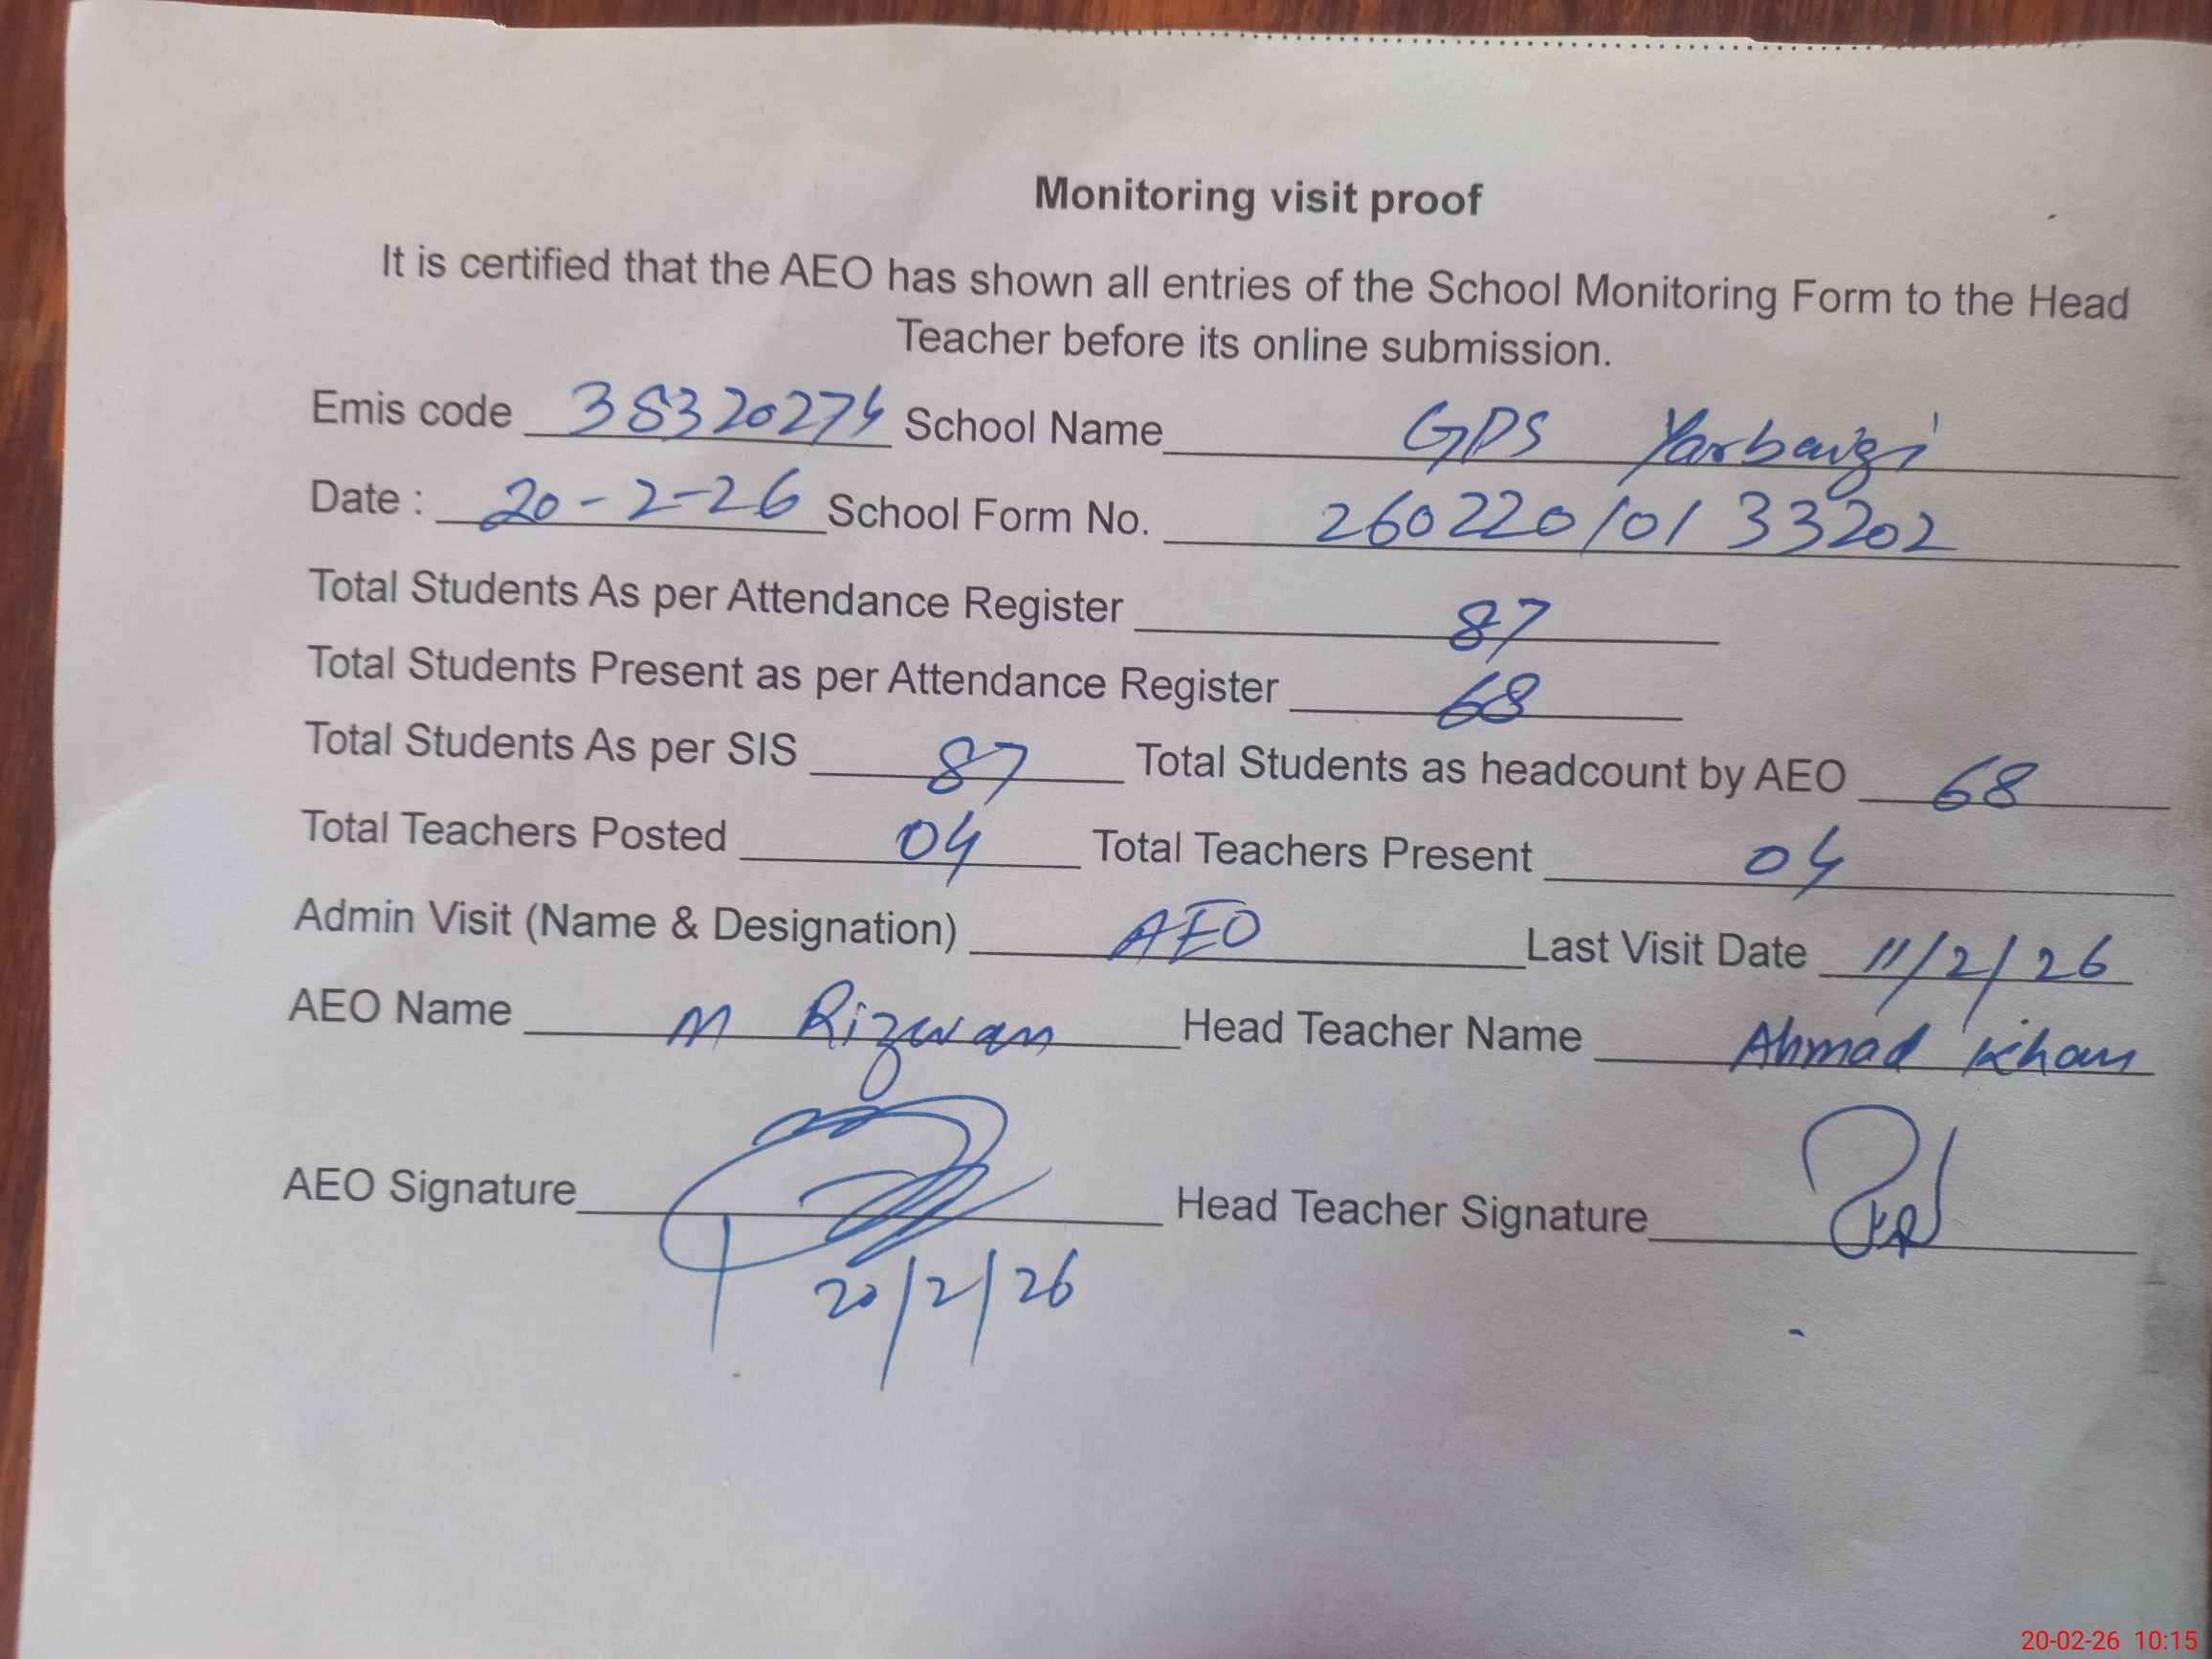 Monitoring visit proof
It is certified that the AEO has shown all entries of the School Monitoring Form to the Head
Teacher before its online submission.
Emis code 38320274 School Name GPS Yarbaigi
Date : 20-2-26 School Form No. 26022010133202
Total Students As per Attendance Register 87
Total Students Present as per Attendance Register 68
Total Students As per SIS 87 Total Students as headcount by AEO 68
Total Teachers Posted 04 Total Teachers Present 04
Admin Visit (Name & Designation) AEO Last Visit Date 11/2/26
AEO Name M Rizwan Head Teacher Name Ahmad Khan
AEO Signature Head Teacher Signature
20/2/26
20-02-26 10:15